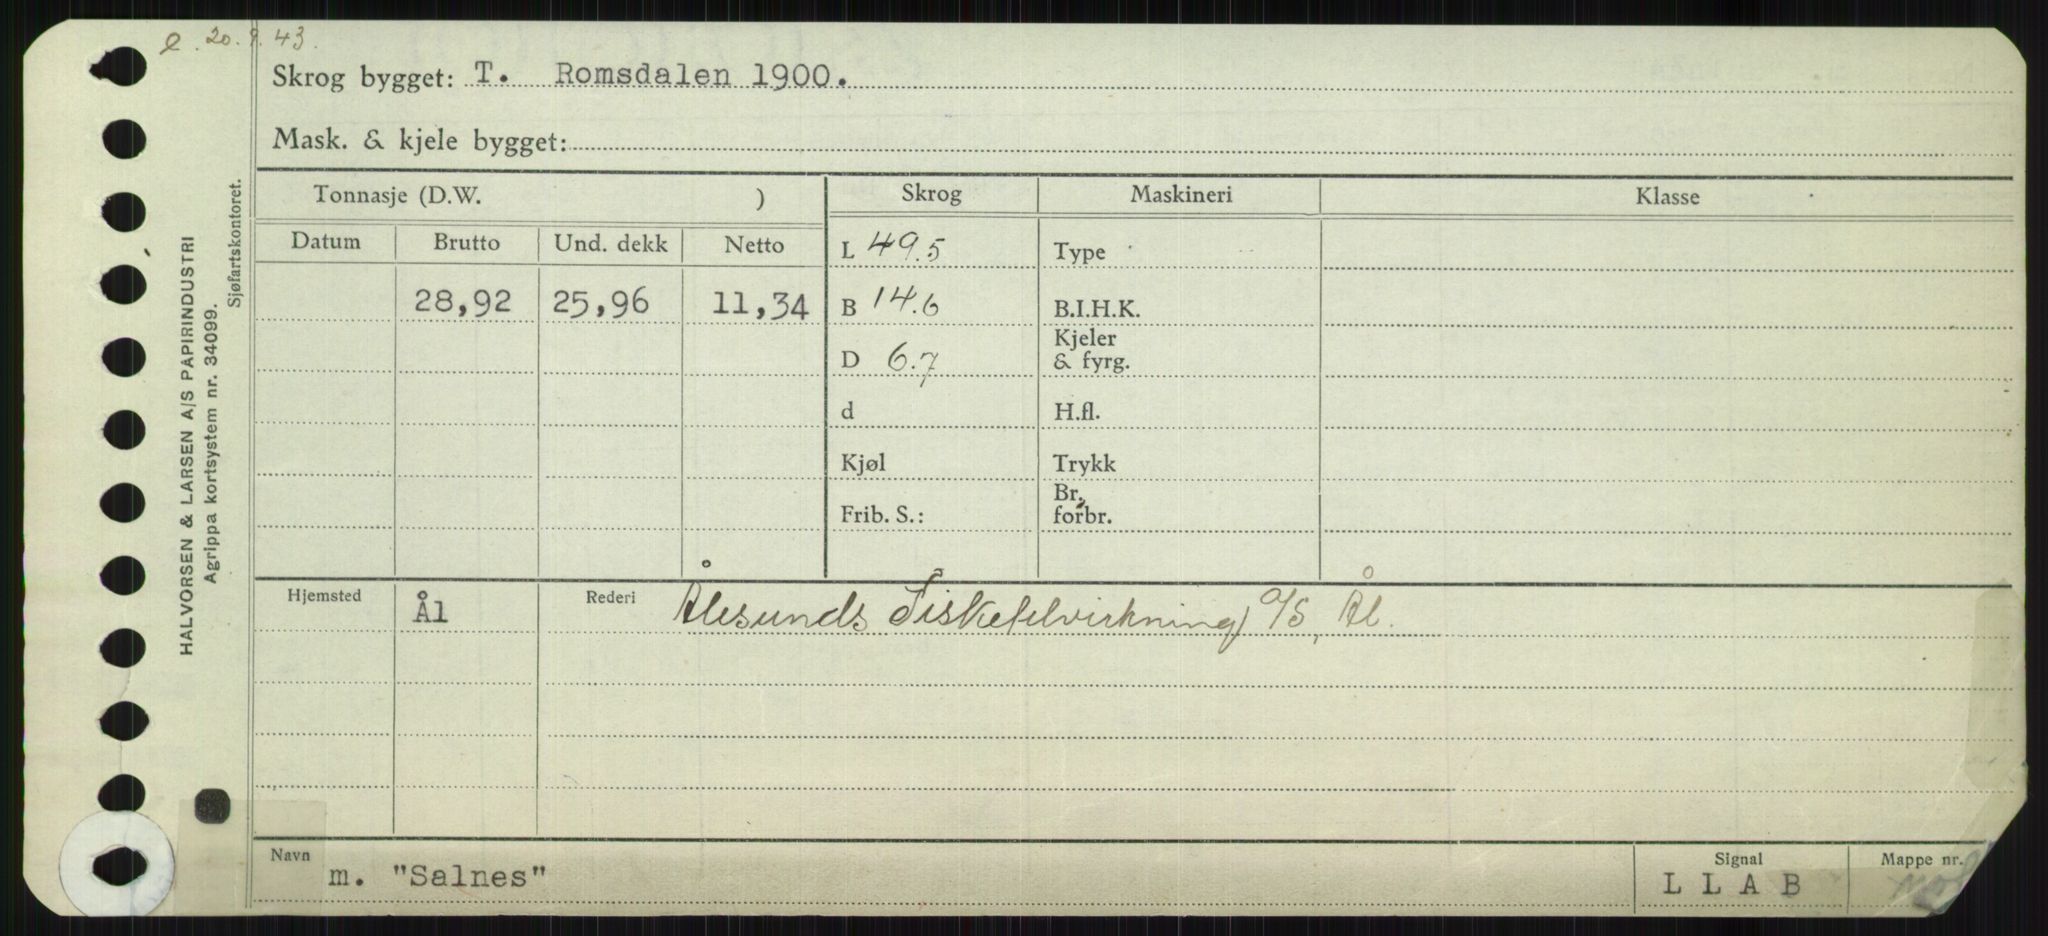 e. 20.9.43.
Skrog bygget: T. Romsdalen 1900.
Mask. & kjele bygget:
Tonnasje (D.W. ) Skrog Maskineri Klasse
Datum Brutto Und. dekk Netto L 49.5 Type
28,92 25,96 11,34 B 14.6 B.I.H.K.
D 6.7 Kjeler & fyrg.
d H.fl.
Kjøl Trykk
Frib. S.: Br. forbr.
Hjemsted Ål Rederi Ålesunds Fisketilvirkning A/S, Ål.
Navn m. "Salnes" Signal L L A B Mappe nr.
HALVORSEN & LARSEN A/S PAPIRINDUSTRI
Agrippa kortsystem nr. 34099.
Sjøfartskontoret.